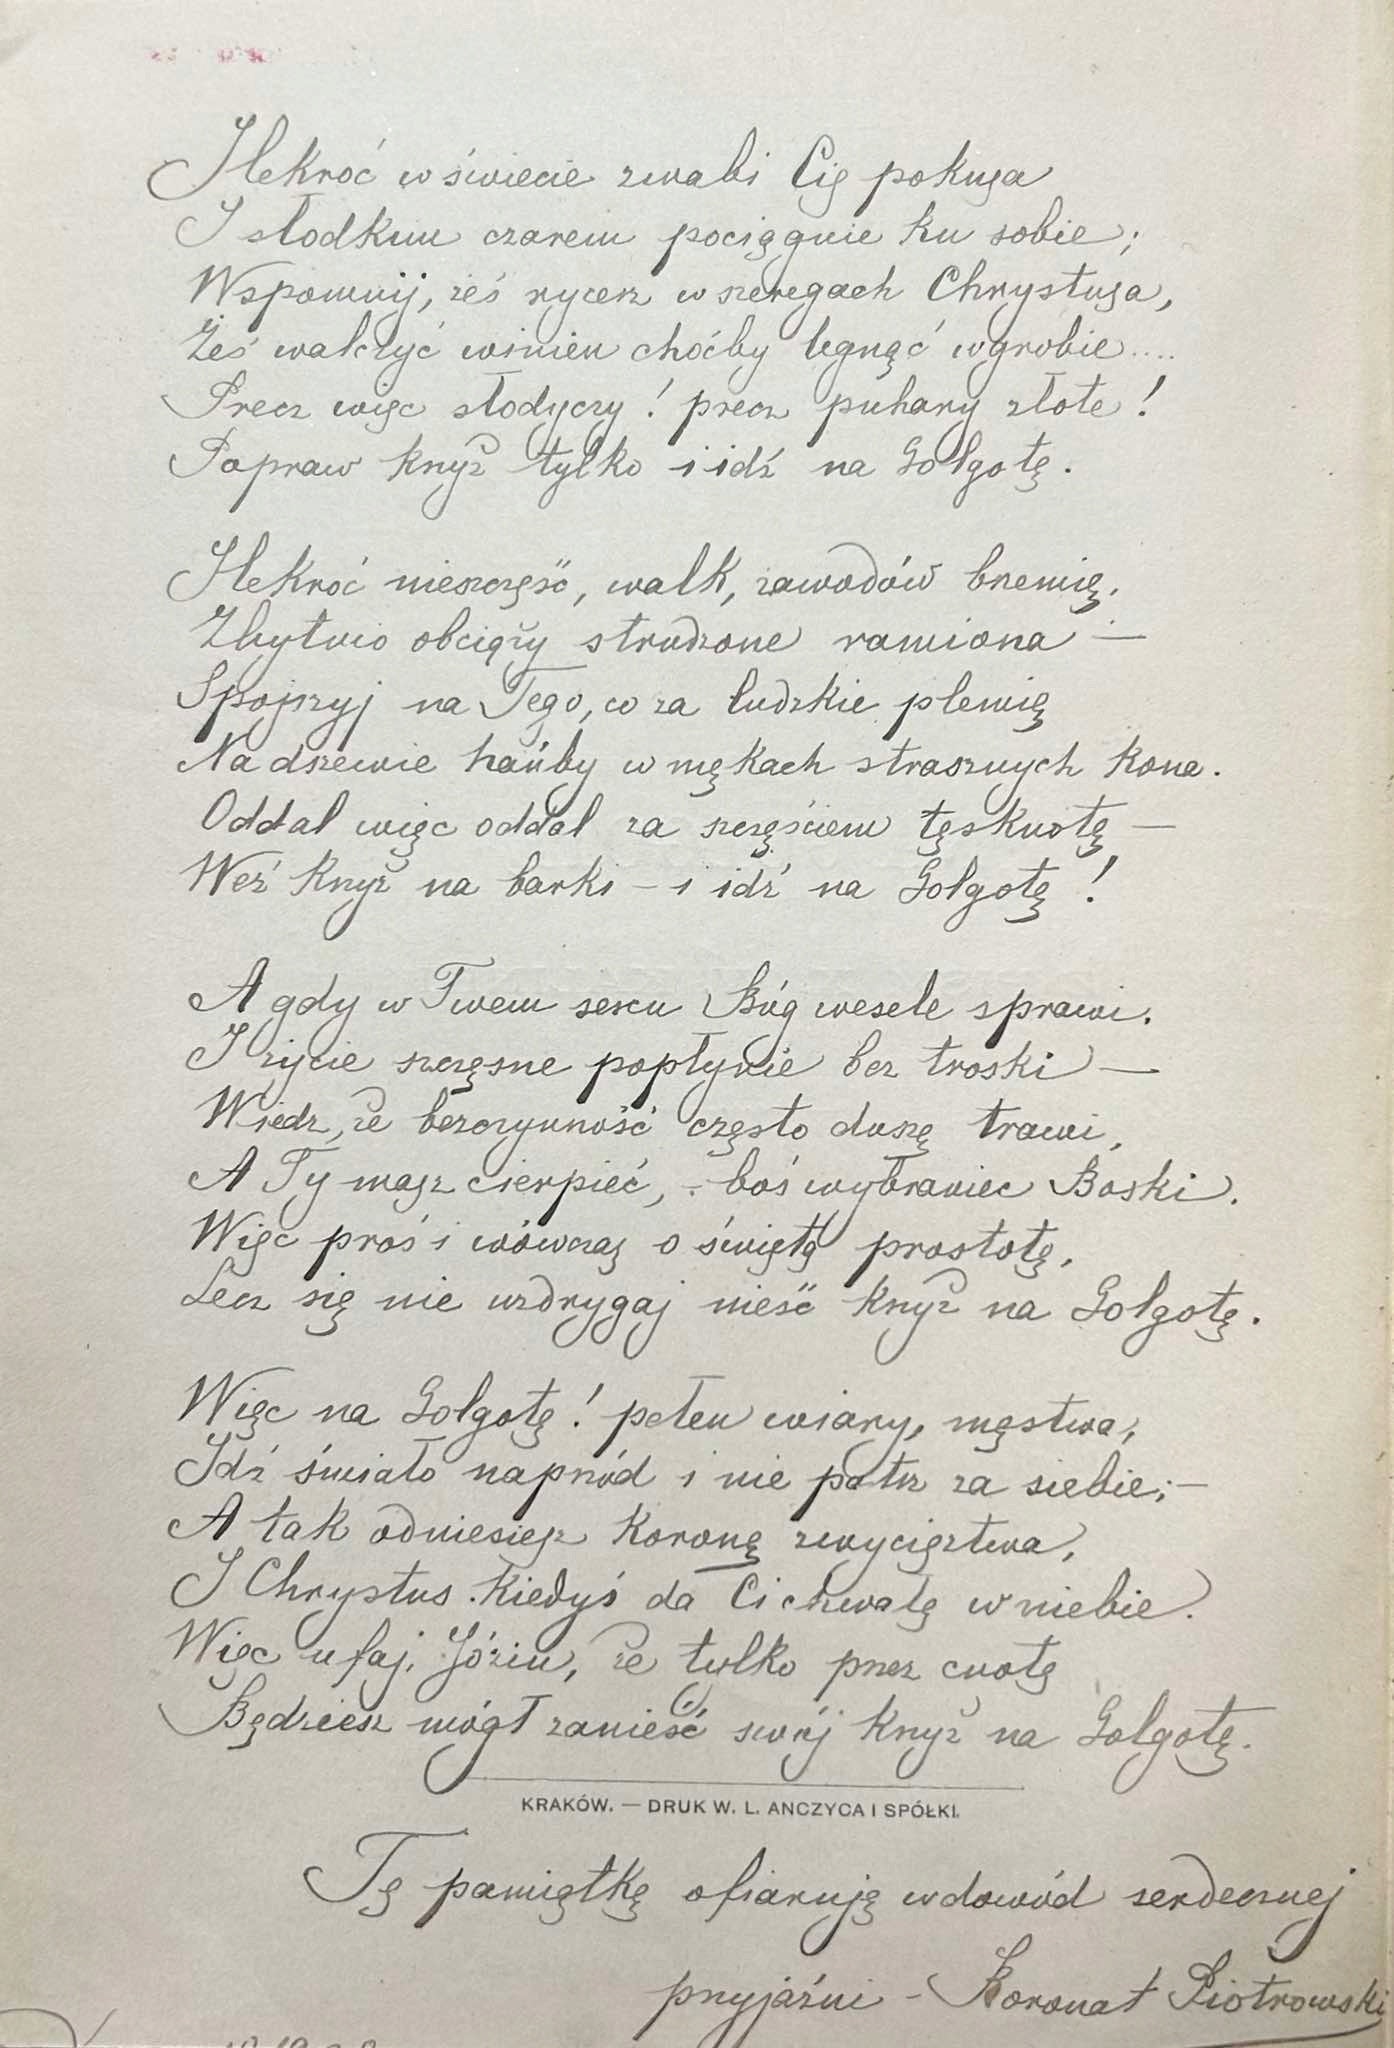 Ilekroć w świecie zwabi Cię pokusa
I słodkim czarem pociągnie ku sobie;
Wspomnij, żeś rycerz w szeregach Chrystusa,
Żeś walczyć winien choćby legnąć w grobie....
Precz więc słodyczy! precz puhary złote!
Popraw krzyż tylko i idź na Golgotę.
Ilekroć nieszczęść, walk, zawodów brzemię,
Zbytnio obciąży strudzone ramiona —
Spojrzyj na Tego, co za ludzkie plemię
Na drzewie hańby w mękach strasznych kona.
Oddal więc oddal za szczęściem tęsknotę —
Weź krzyż na barki – i idź na Golgotę!
A gdy w Twem sercu Bóg wesele sprawi,
I życie szczęsne popłynie bez troski —
Wiedz, że bezczynność często duszę trawi,
A Ty masz cierpieć, – boś wybraniec Boski.
Więc proś i wówczas o świętą prostotę,
Lecz się nie wzdrygaj nieść krzyż na Golgotę.
Więc na Golgotę! pełen wiary, męstwa,
Idź śmiało naprzód i nie patrz za siebie; –
A tak odniesiesz koronę zwycięztwa,
I Chrystus kiedyś da Ci chwałę w niebie.
Więc ufaj, Józiu, że tylko przez cnotę
Będziesz mógł zanieść swój krzyż na Golgotę.
KRAKÓW. — DRUK W. L. ANCZYCA I SPÓŁKI.
Tę pamiątkę ofiaruję w dowód serdecznej
przyjaźni – Koronat Piotrowski